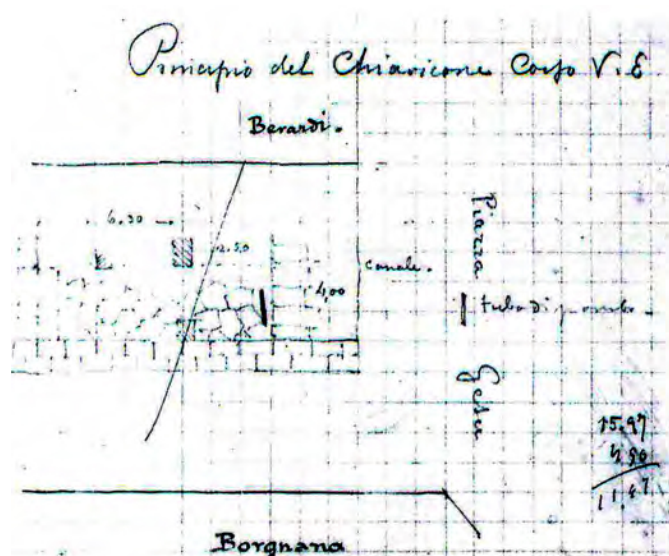 Principio del Chiavicone Corso V. E
Berardi.
6.30
2.50
4,00
canale.
Piazza
Gesu
tubo di piombo
15.97
4.50
11.47
Borgnana